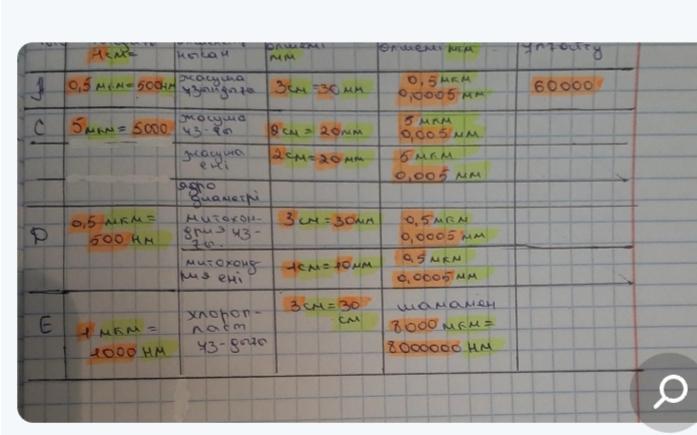 1 см=
нысан
мм
өлшемі мкм
ұлғайту
0,5 мкм=500нм
жасуша
ұзындығы
3см=30мм
0,5мкм
0,0005 мм
60000
С
5мкм=5000
жасуша
ұз-ғы
8см=20мм
5мкм
0,005мм
жасуша
ені
2см=20мм
5мкм
0,005мм
ядро
диаметрі
D
0,5мкм=
500 нм
митохон-
дрия ұз-
ғы.
3см=30мм
0,5мкм
0,0005мм
митохонд
рия ені
1см=10мм
0,5мкм
0,0005мм
Е
1 мкм=
1000 нм
хлороп-
ласт
ұз-дығы
3см=30
см
шамамен
8000 мкм=
8000000 нм